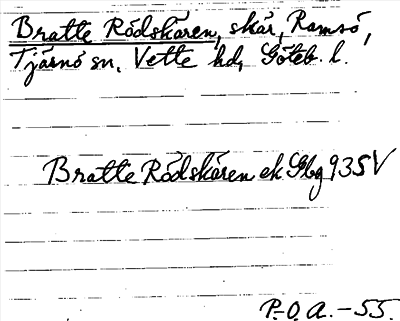 Bratte Rödskären, skär, Ramsö,
Tjärnö sn, Vette hd, Göteb. l.
Bratte Rödskären ek Gbg 935V
P.O.A. - 55.